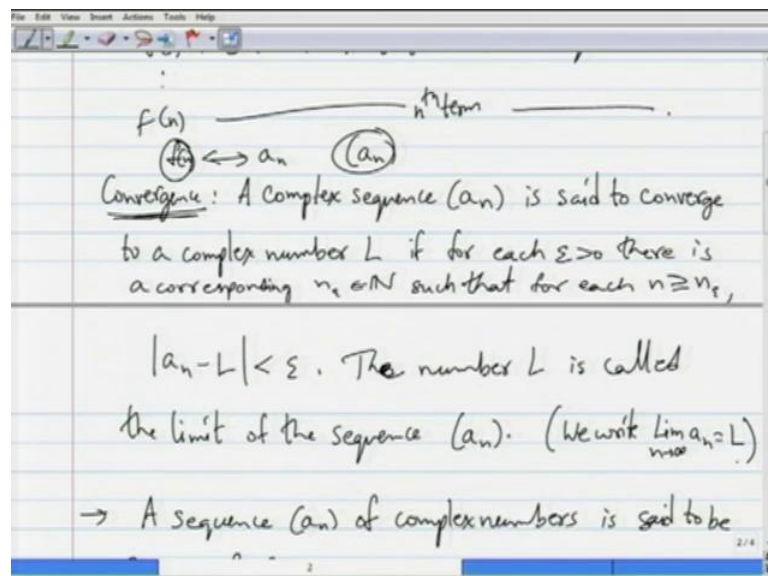 File Edit View Insert Actions Tools Help
f(n) ——— nth term ——— .
f(n) ↔ an (an)
Convergence : A complex sequence (an) is said to converge
to a complex number L if for each ε>0 there is
a corresponding nε ∈ N such that for each n ≥ nε,
|an - L| < ε. The number L is called
the limit of the sequence (an). (We write Lim an = L)
n→∞
→ A sequence (an) of complex numbers is said to be
2/4
2